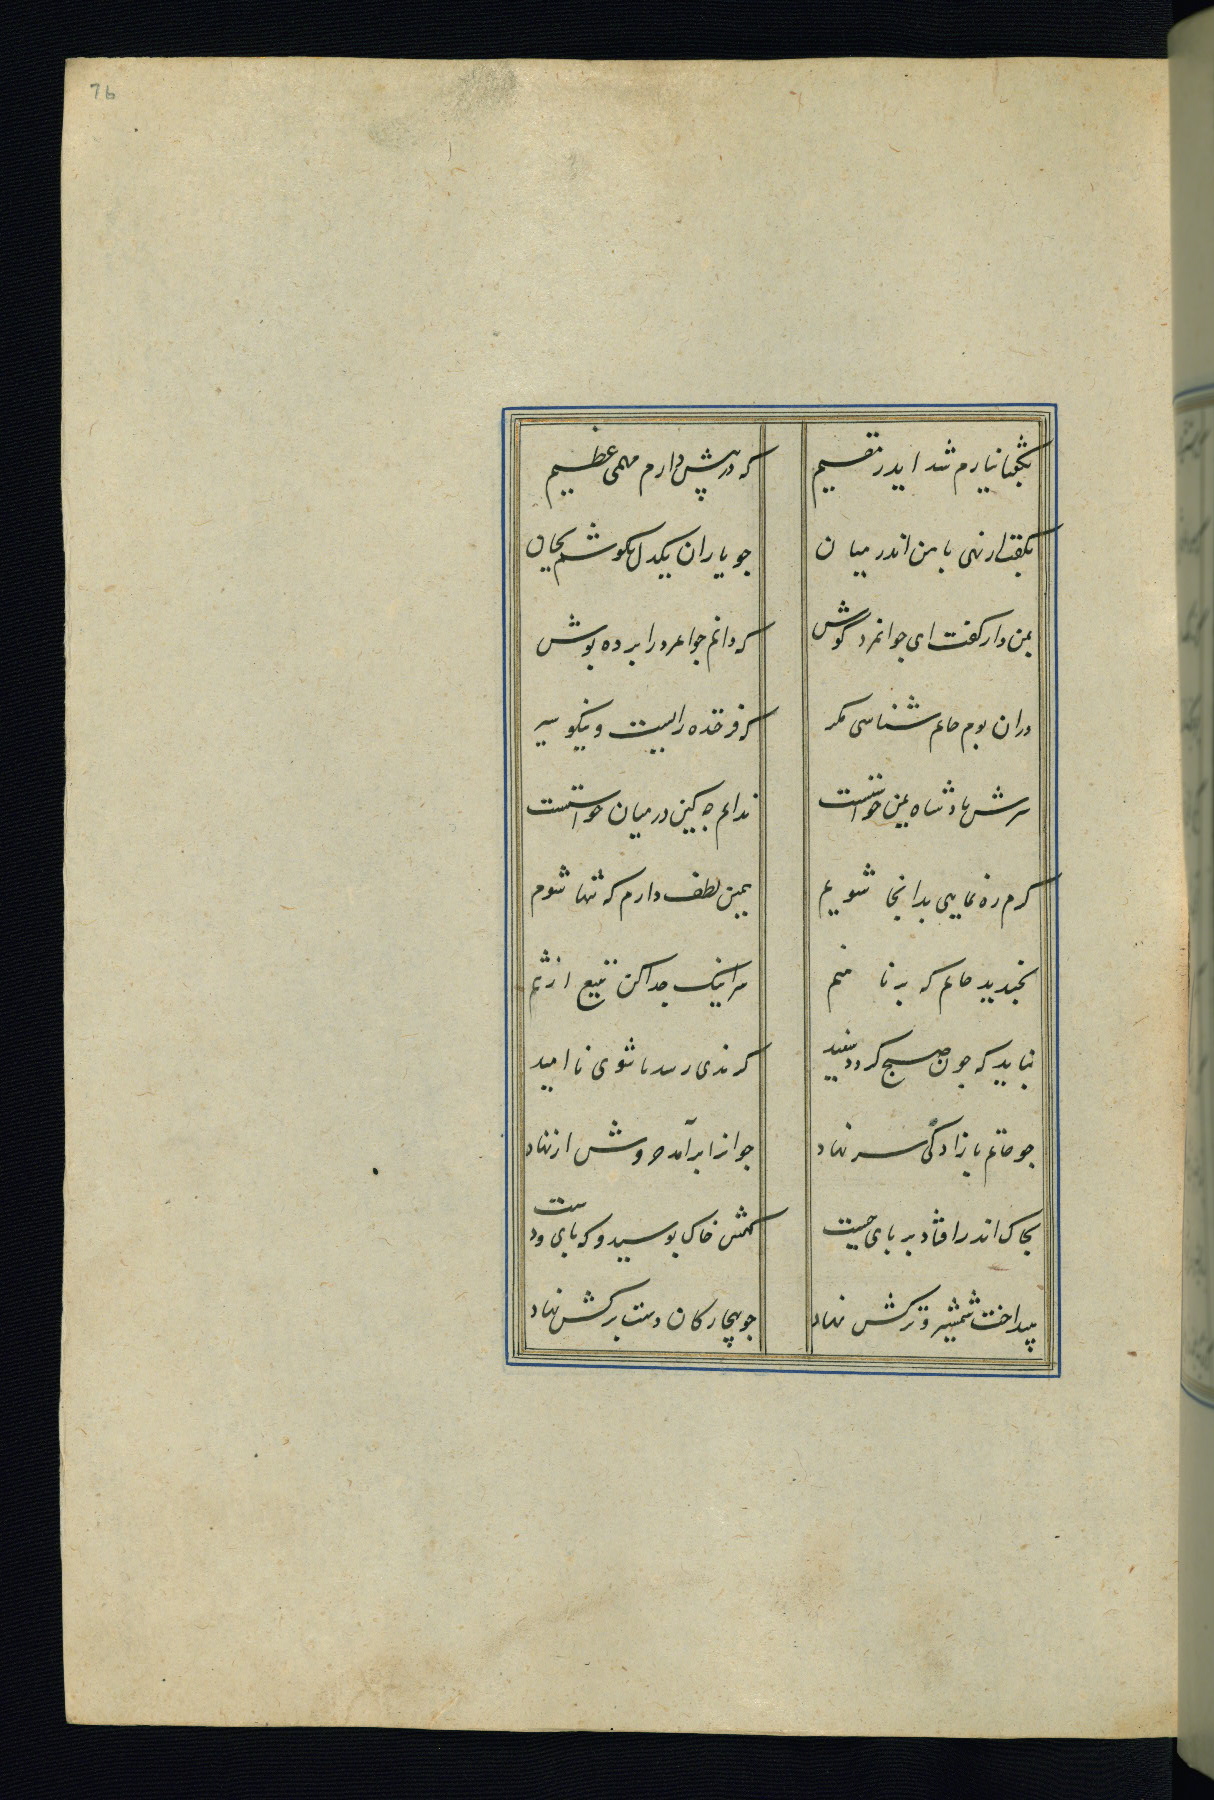 76
بگفتا نیارم شد ایدر مقیم که در پیش دارم مهمی عظیم
بگفت ار نهی با من اندر میان جو یاران یکدل بکوشم بجان
بمن دار گفت ای جوانمرد گوش که دانم جوامرد را برده بوش
دران بوم حاتم شناسی مکر که فرخنده رایست و نیکو سیر
سرش بادشاه یمن خواستست ندانم جه کین در میان خواستست
کرم ره نمایی بدانجا شویم همین لطف دارم که تنها شوم
بخندید حاتم که برنا منم سر اینک جدا کن بتیغ از تنم
نباید که جون صبح کردد سفید کزندی رسد یا شوی نا امید
جو حاتم بازادکی سر نهاد جوانرا برآمد خروش از نهاد
بخاک اندر افتاد بر بای جست کهش خاک بوسید و که بای و دست
بینداخت شمشیر و ترکش نهاد جو بیجارکان دست بر کش نهاد